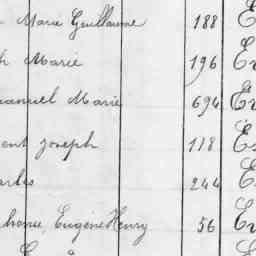 Marie Guillaume 188 E
h Marie 196 E
anuel Marie 694 E
ent Joseph 118 E
arles 244 E
hanie, Eugène Henry 56 E